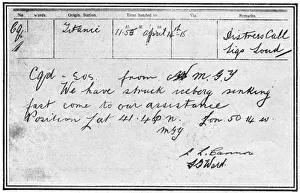 No. words. Origin. Time handed in Via. Remarks.
Titanic 11.55 April 14th 15 Distress Call
Sigs Loud
Cqd - Sos. from M.G.Y
We have struck iceberg sinking
fast come to our assistance
Position Lat 41.46 n. Lon. 50.14 w.
MGY